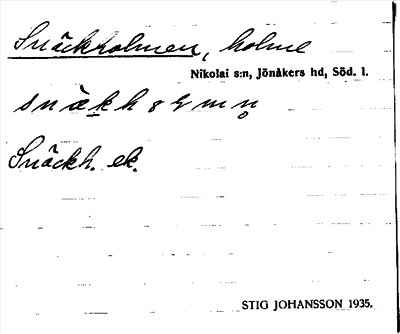 Snäckholmen, holme
Nikolai s:n, Jönåkers hd, Söd. l.
Snäckh. ek.
STIG JOHANSSON 1935.